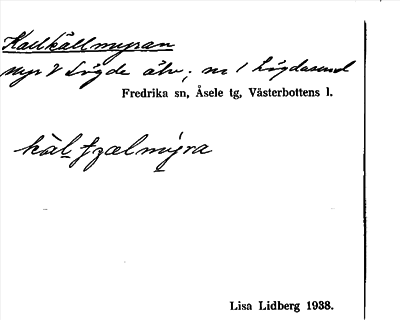 Kallkällmyran
myr V Lögde älv, nr 1 Lögdasund
Fredrika sn, Åsele tg, Västerbottens l.
kàl ʃʒælmỳra
Lisa Lidberg 1938.